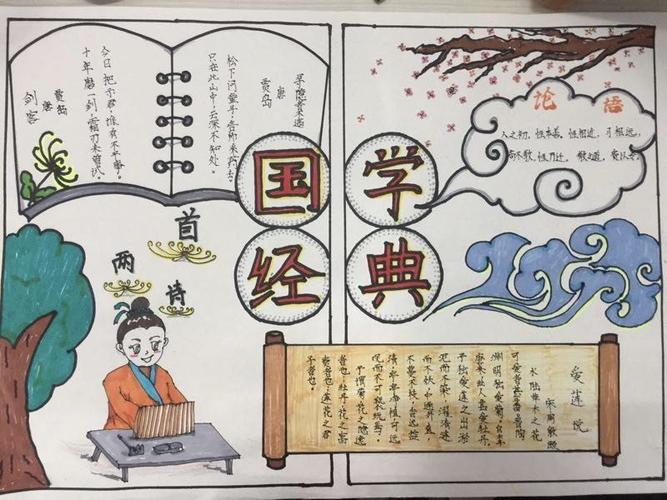 国学
经典
寻隐者不遇
唐
贾岛
松下问童子，言师采药去。
只在此山中，云深不知处。
剑客
唐
贾岛
十年磨一剑，霜刃未曾试。
今日把示君，谁有不平事。
两首诗
论语
人之初，性本善，性相近，习相远，
苟不教，性乃迁，教之道，贵以专。
爱莲说
宋周敦颐
水陆草木之花
可爱者甚蕃晋陶
渊明独爱菊自李
唐来世人甚爱牡丹
予独爱莲之出淤
泥而不染，濯清涟
而不妖，中通外直
不蔓不枝，香远益
清，亭亭净植可远
观而不可亵玩焉。
予谓菊花之隐逸
者也；牡丹，花之富
贵者也；莲，花之君
子者也。